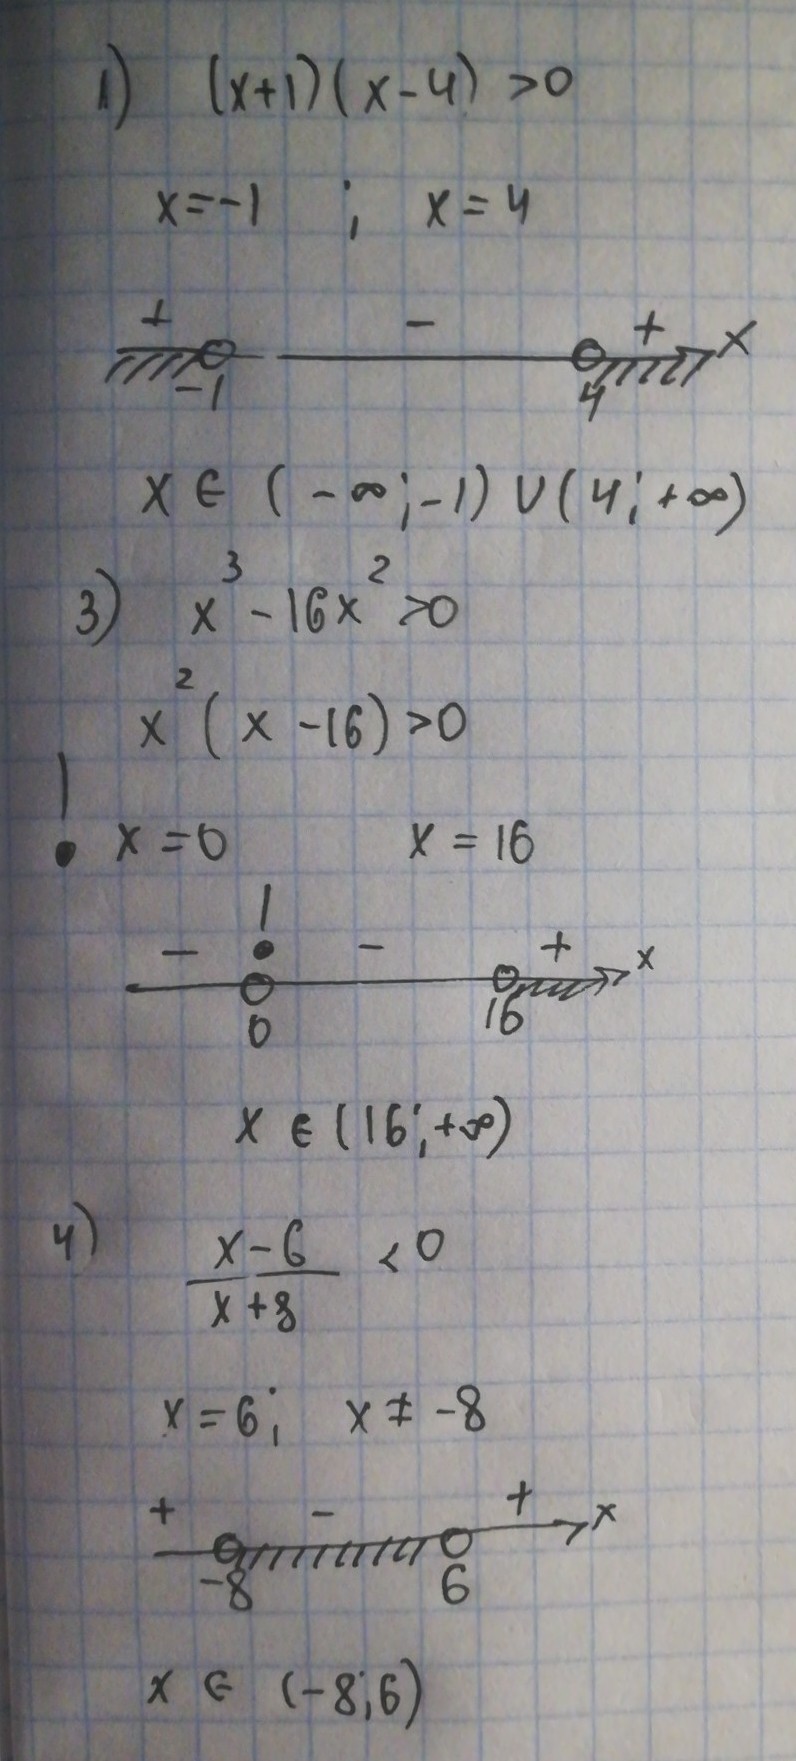 1) (x+1)(x-4) >0
x=-1 ; x=4
+ - + x
-1 4
x ∈ (-∞;-1) ∪ (4;+∞)
3) x³-16x²>0
x²(x-16)>0
! x=0 x=16
- ! - + x
0 16
x ∈ (16;+∞)
4) x-6
x+8 <0
x=6; x≠-8
+ - + x
-8 6
x ∈ (-8;6)